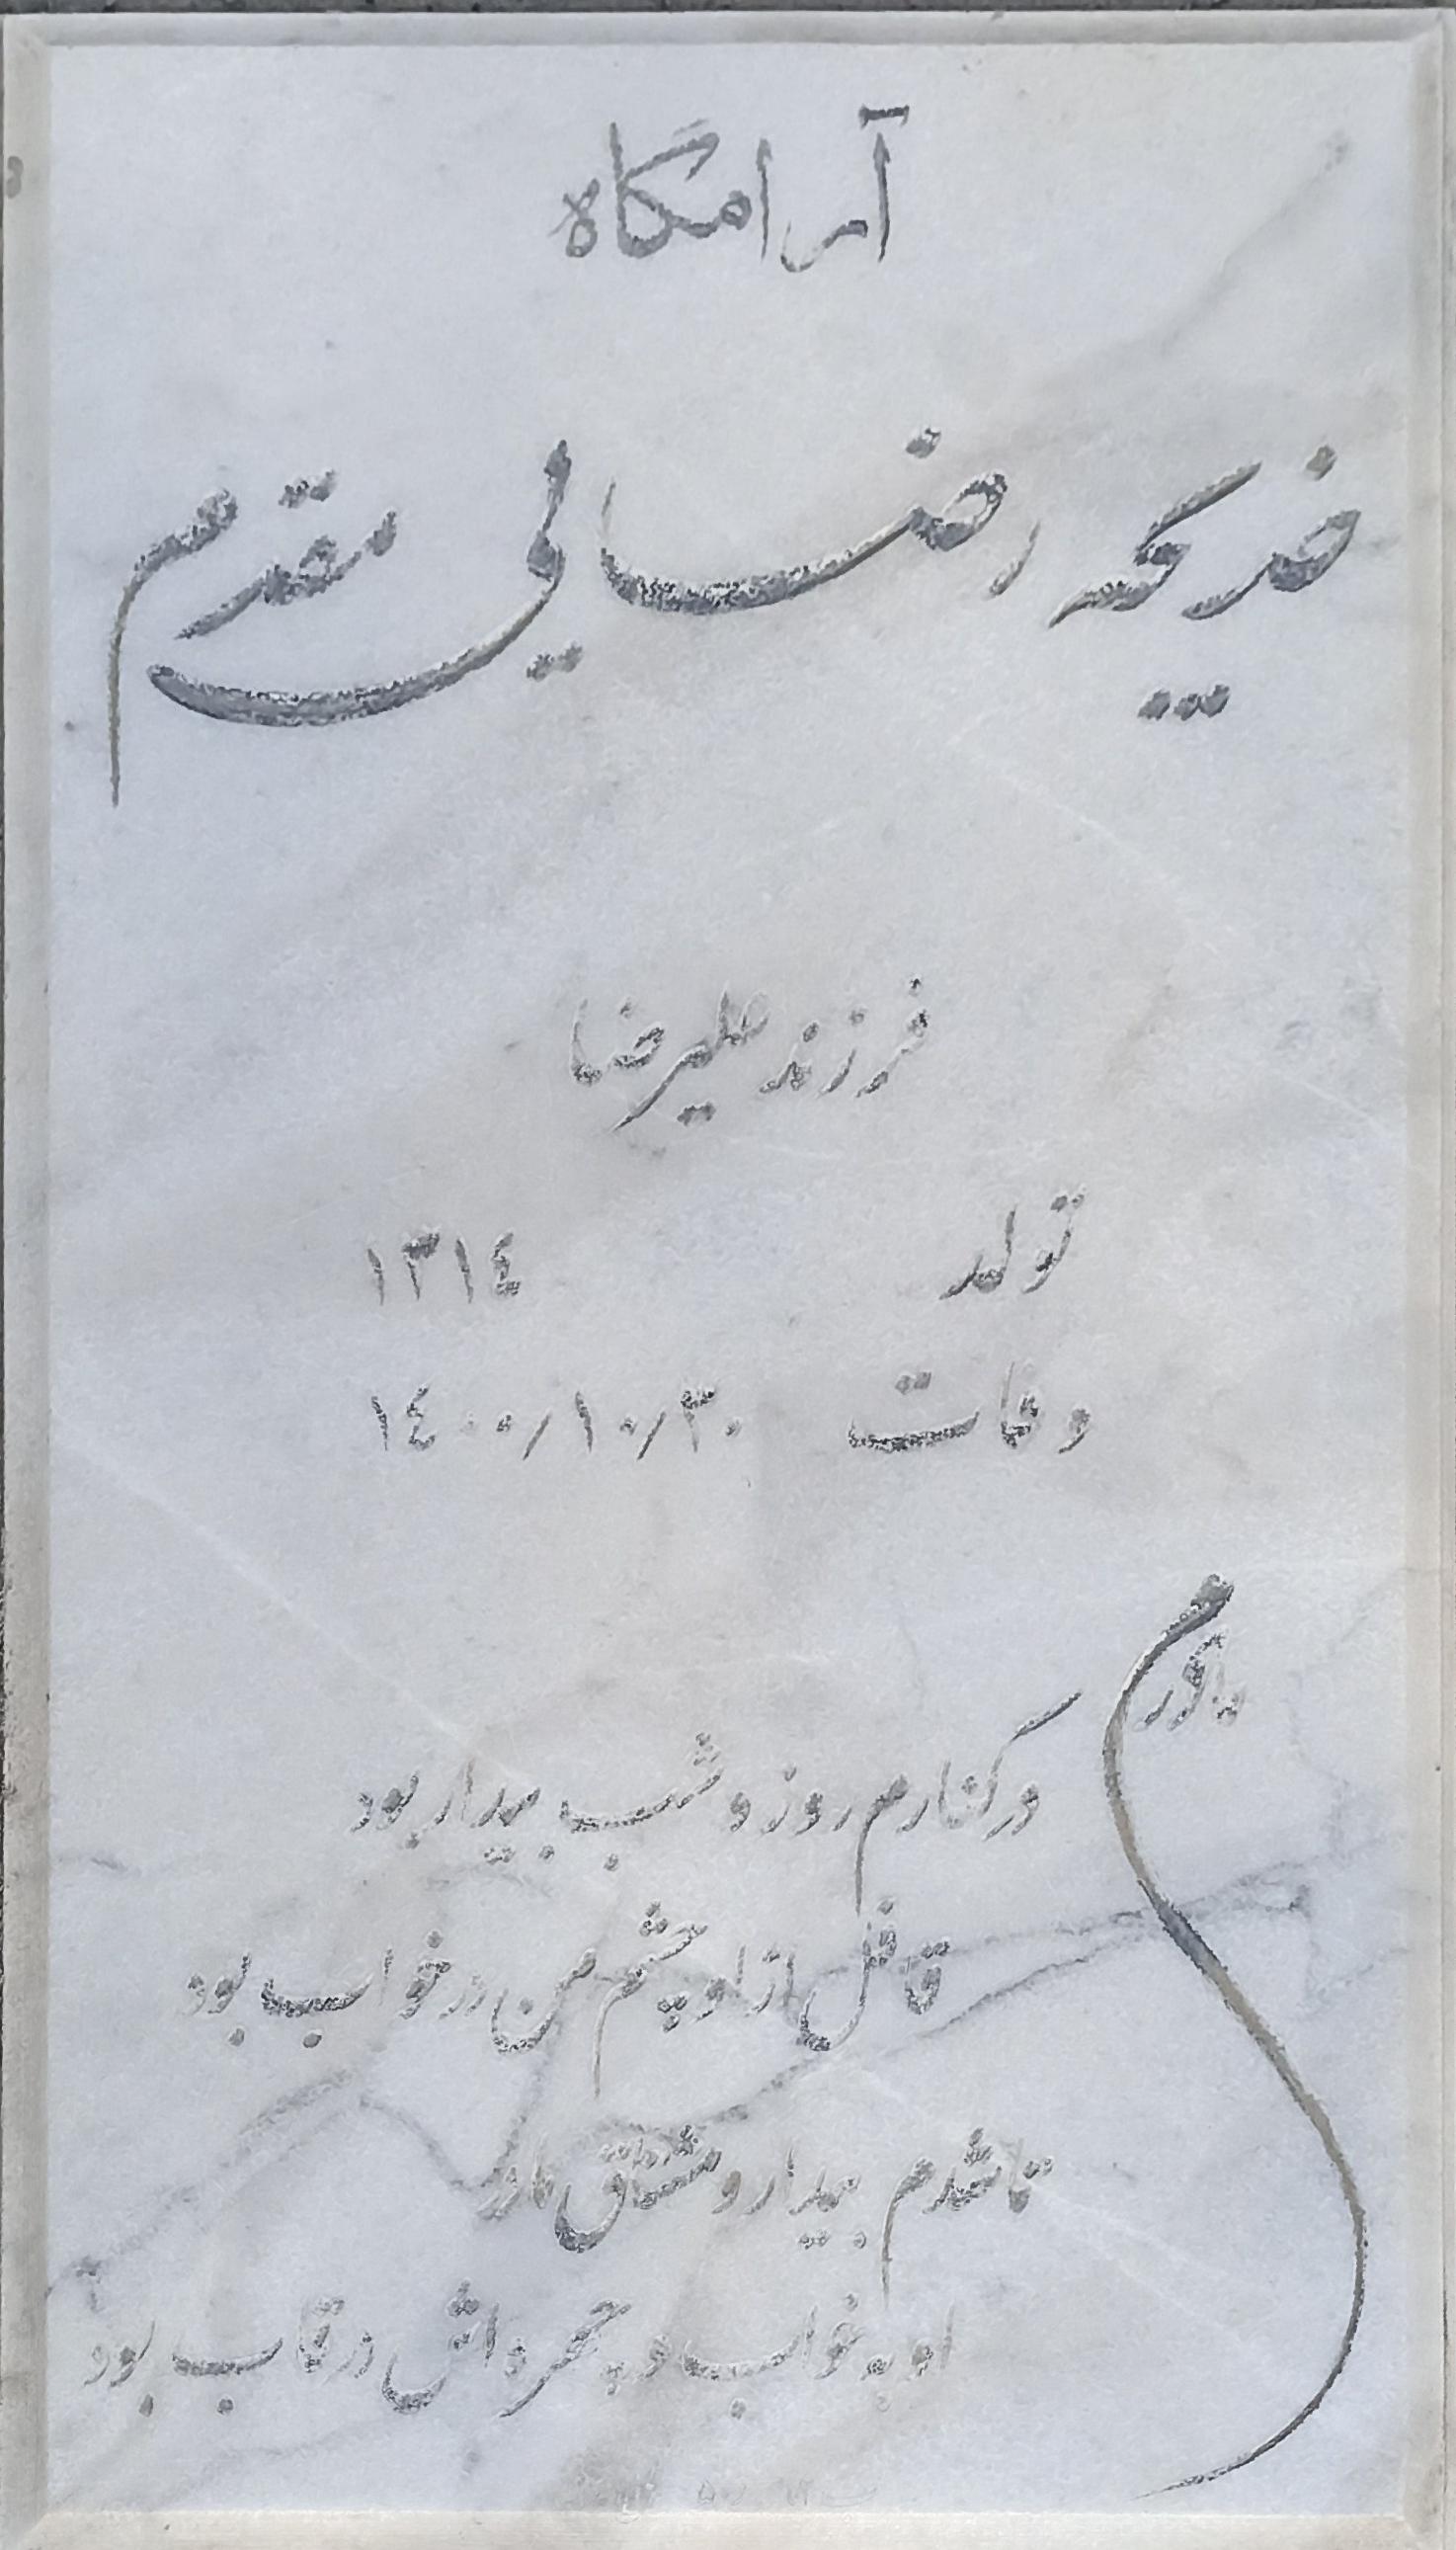 آرامگاه
خدیجه رضایی مقدم
فرزند علیرضا
تولد ۱۳۱۴
وفات ۱۴۰۰/۱۰/۳۰
مادرم
در کنارم روز و شب بیدار بود
قافل از او چشم من در خواب بود
تا شدم بیدار و مشتاق مادر
او به خواب و چهره اش در قاب بود